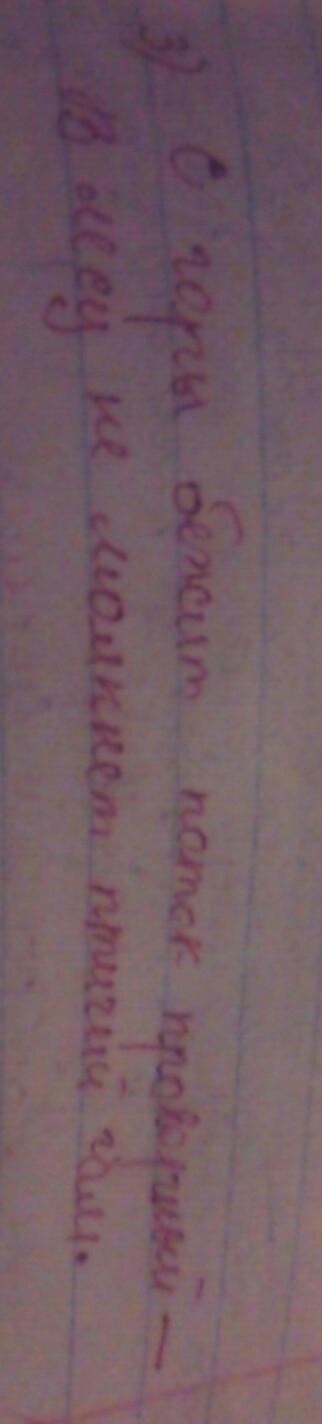 3) С горы бежит поток проворный —
В лесу не молкнет птичий гам.